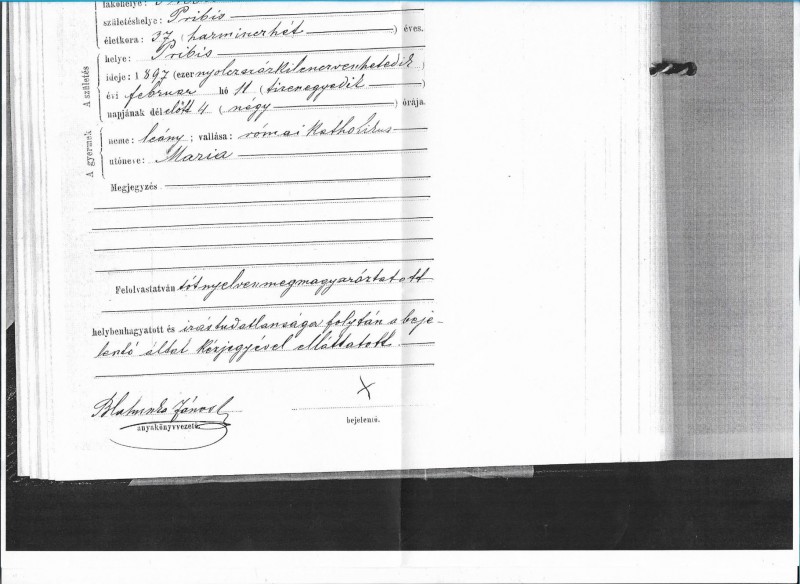 lakóhelye:
születéshelye: Pribis
életkora: 37 (harminczhét) éves.
A születés
helye: Pribis
ideje: 1897 (ezernyolczszázkilenczvenhetedik
évi februar hó 11 (tizenegyedik)
napjának délelőtt 4 (négy) órája.
A gyermek
neme: leány; vallása: római katholikus
utóneve: Maria
Megjegyzés
Felolvastatván tót nyelven megmagyaráztatott
helybenhagyatott és irástudatlansága folytán a beje-
lentő által kézjegyével elláttatott
X
János
anyakönyvvezető.
bejelentő.